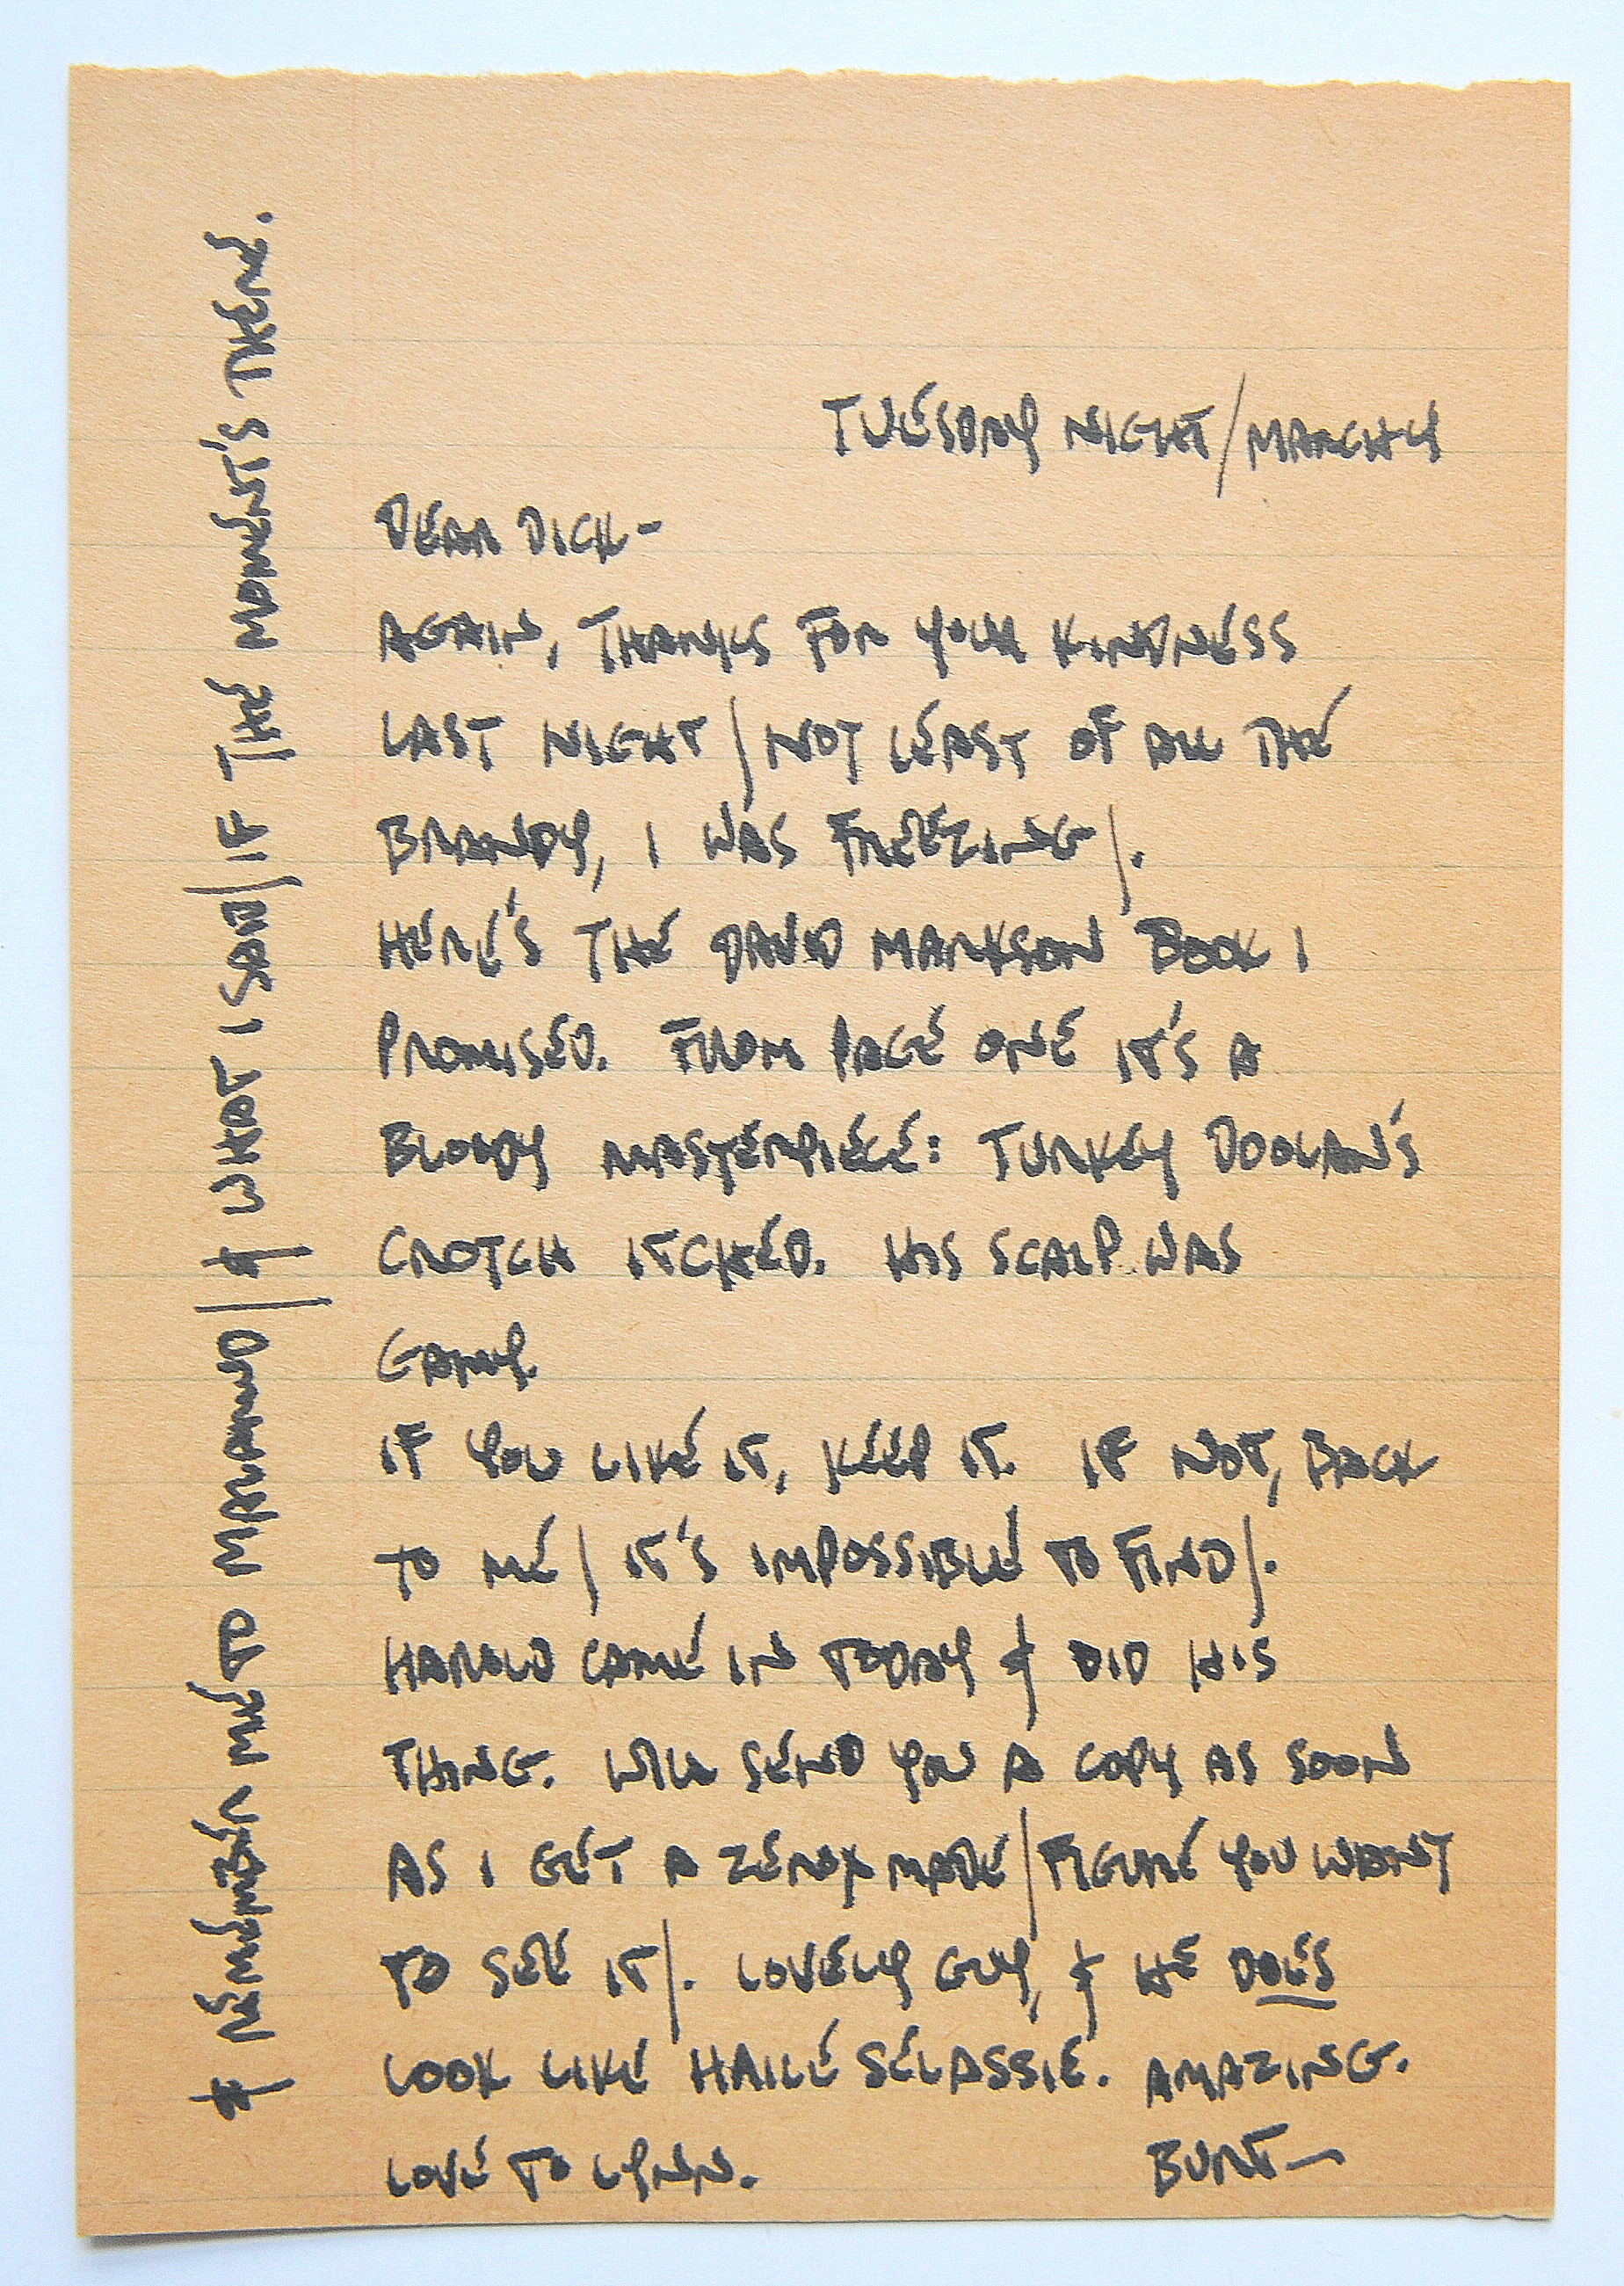 TUESDAY NIGHT/MARCH 4
DEAR DICK-
AGAIN, THANKS FOR YOUR KINDNESS
LAST NIGHT/NOT LEAST OF ALL THE
BRANDY, I WAS FREEZING/.
HERE'S THE DAVID MARKSON BOOK I
PROMISED. FROM PAGE ONE IT'S A
BLOODY MASTERPIECE: TURKEY DOOLAN'S
CROTCH ITCHED. HIS SCALP WAS
GAMY.
IF YOU LIKE IT, KEEP IT. IF NOT, BACK
TO ME/IT'S IMPOSSIBLE TO FIND/.
HAROLD CAME IN TODAY & DID HIS
THING. WILL SEND YOU A COPY AS SOON
AS I GET A ZEROX MADE/FIGURE YOU WANT
TO SEE IT/. LOVELY GUY, & HE DOES
LOOK LIKE HAILE SELASSIE. AMAZING.
LOVE TO LYNN. BURT—
& REMEMBER ME TO MARAND/& WHAT I SAID/IF THE MOMENT'S THERE.